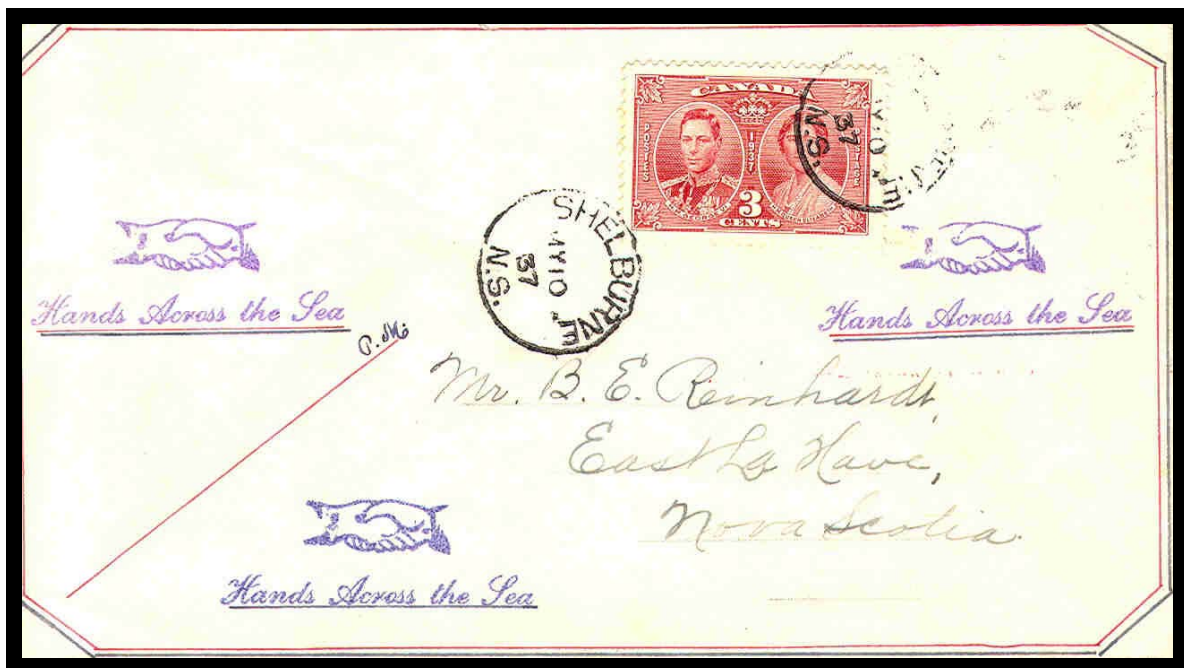 CANADA
POSTES
1937
POSTAGE
3
CENTS
MY 10
37
N.S.
SHELBURNE
MY 10
37
N.S.
Hands Across the Sea
Hands Across the Sea
P.M.
Mr. B. E. Reinhardt,
East La Have,
Nova Scotia.
Hands Across the Sea